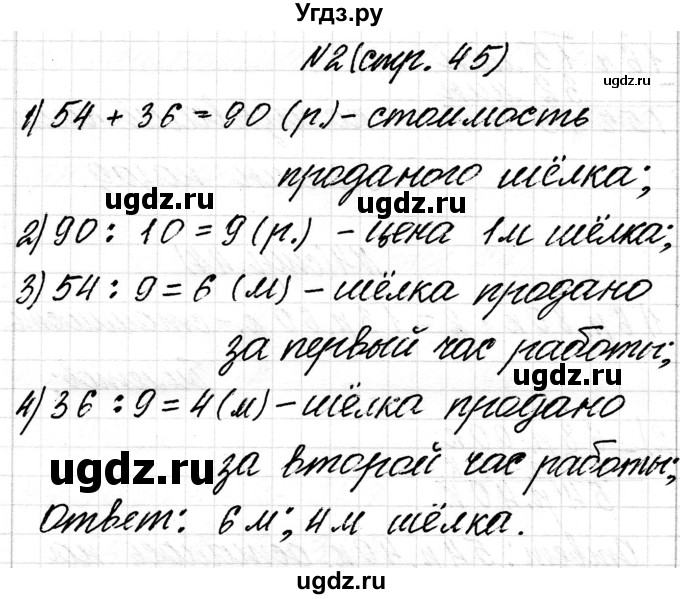 Угдз.ру
N2 (стр. 45)
ugdz.ru
1) 54 + 36 = 90 (р.) - стоимость
проданого шёлка;
ugdz.ru
2) 90 : 10 = 9 (р.) - цена 1м шёлка;
3) 54 : 9 = 6 (м) - шёлка продано
за первый час работы;
ugdz.ru
4) 36 : 9 = 4 (м) - шёлка продано
за второй час работы;
ugdz.ru
Ответ: 6 м; 4 м шёлка.
ugdz.ru